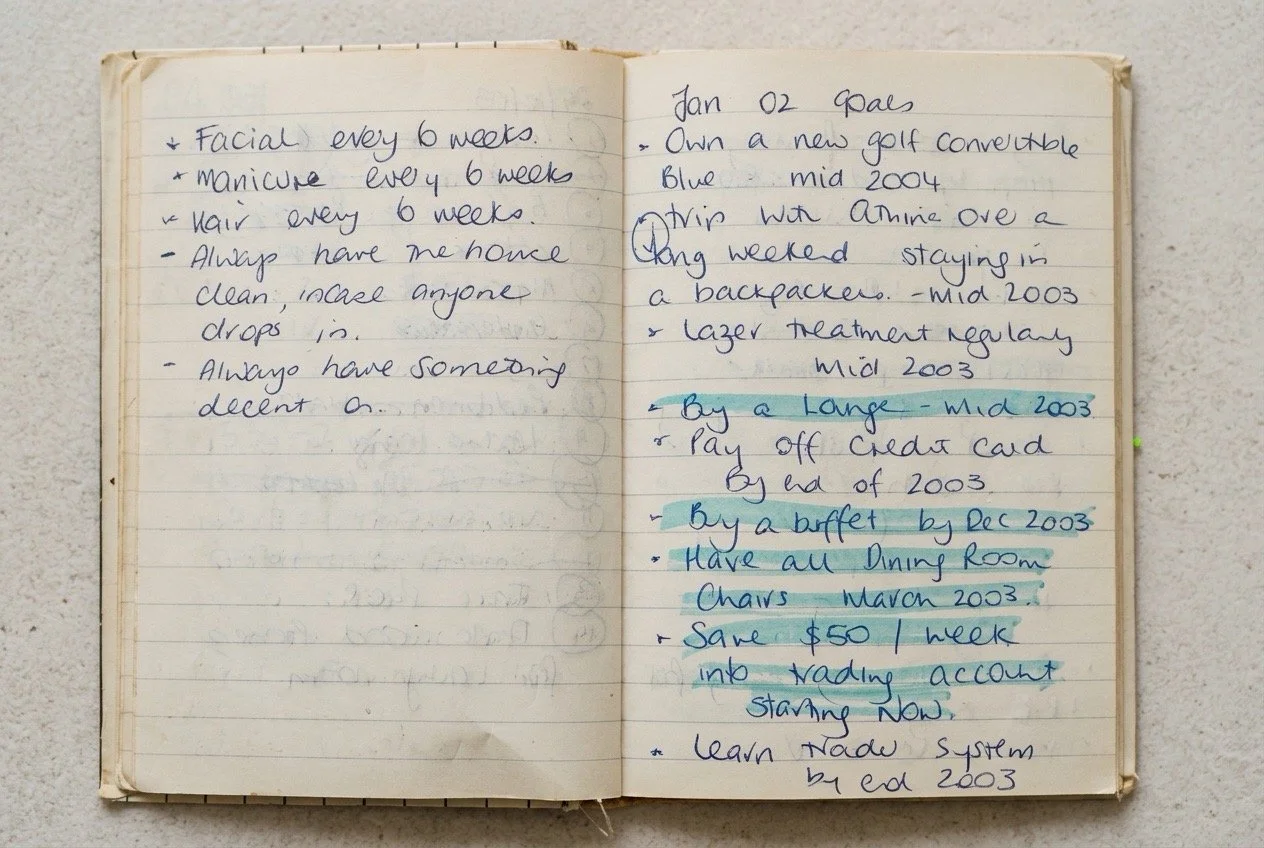 * Facial every 6 weeks.
* Manicure every 6 weeks
- Hair every 6 weeks.
- Always have the house
clean, incase anyone
drops in.
- Always have something
decent on.
Jan 02 Goals
* Own a new golf convertible
Blue - mid 2004
trip with Athine ove a
long weekend staying in
a backpackers. - Mid 2003
* Lazer treatment regularly
Mid 2003
* Buy a Lounge - Mid 2003
* Pay off Credit Card
By end of 2003
- Buy a buffet by Dec 2003
* Have all Dining Room
Chairs - March 2003.
* Save $50 / week
into trading account
starting Now.
* Learn Trade System
by end 2003